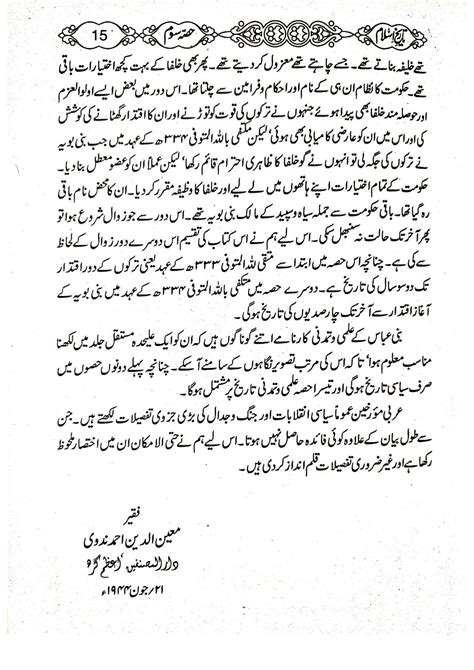 تاریخ اسلام حصہ سوم 15
تھے خلیفہ بناتے تھے۔ جسے چاہتے تھے معزول کر دیتے تھے۔ پھر بھی خلفا کے بہت کچھ اختیارات باقی
تھے۔ حکومت کا نظام ان ہی کے نام اور احکام وفرامین سے چلتا تھا۔ اس دور میں بعض ایسے اولوالعزم
اور حوصلہ مند خلفا بھی پیدا ہوئے جنہوں نے ترکوں کی قوت کو توڑنے اور ان کا اقتدار گھٹانے کی کوشش
کی اور اس میں ان کو عارضی کامیابی بھی ہوئی' لیکن مکتفی باللہ المتوفی ۳۳۴ھ کے عہد میں جب بنی بویہ
نے ترکوں کی جگہ لی تو انہوں نے گو خلفا کا ظاہری احترام قائم رکھا' لیکن عملاً ان کو عضو معطل بنا دیا۔
حکومت کے تمام اختیارات اپنے ہاتھوں میں لے لیے اور خلفا کا وظیفہ مقرر کر دیا۔ ان کا محض نام باقی
رہ گیا تھا۔ باقی حکومت سے جملہ سیاہ وسپید کے مالک بنی بویہ تھے۔ اس دور سے جو زوال شروع ہوا تو
پھر آخر تک حالت نہ سنبھل سکی۔ اس لیے ہم نے اس کتاب کی تقسیم اس دوسرے دور زوال کے لحاظ
سے کی ہے۔ چنانچہ اس حصہ میں ابتدا سے متقی باللہ المتوفی ۳۳۳ھ کے عہد یعنی ترکوں کے دور اقتدار
تک دو سو سال کی تاریخ ہے۔ دوسرے حصہ میں مکتفی باللہ المتوفی ۳۳۴ھ کے عہد میں بنی بویہ کے
آغاز اقتدار سے آخر تک چار صدیوں کی تاریخ ہوگی۔
بنی عباس کے علمی وتمدنی کارنامے اتنے گوناگوں ہیں کہ ان کو ایک علیحدہ مستقل جلد میں لکھنا
مناسب معلوم ہوا' تاکہ اس کی مرتب تصویر نگاہوں کے سامنے آسکے۔ چنانچہ پہلے دونوں حصوں میں
صرف سیاسی تاریخ ہوگی اور تیسرا حصہ علمی وتمدنی تاریخ پر مشتمل ہوگا۔
عربی مؤرخین عموماً سیاسی انقلابات اور جنگ وجدال کی بڑی جزوی تفصیلات لکھتے ہیں۔ جن
سے طول بیان کے علاوہ کوئی فائدہ حاصل نہیں ہوتا۔ اس لیے ہم نے حتی الامکان ان میں اختصار ملحوظ
رکھا ہے اور غیر ضروری تفصیلات قلم انداز کر دی ہیں۔
فقیر
معین الدین احمد ندوی
دار المصنفین' اعظم گڑھ
۲۱/جون ۱۹۴۴ء